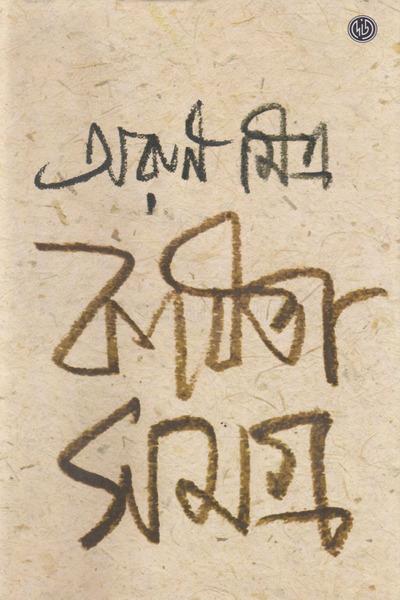 অরুণ মিত্র
কবিতা
সমগ্র